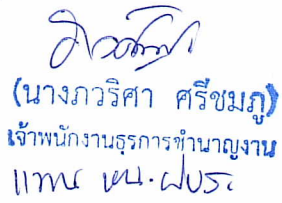 (นางภวริศา ศรีชมภู)
เจ้าพนักงานธุรการชำนาญงาน
แทน หน.ฝบร.